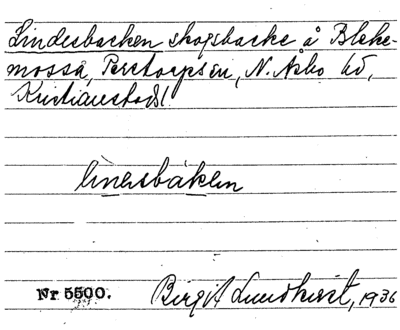 Lindesbacken skogsbacke å Bleke-
mossa, Perstorps sn, N. Åsbo hd,
Kristianstads l.
linesbáken
Nr 5500.
Birgit Lundkvist, 1936